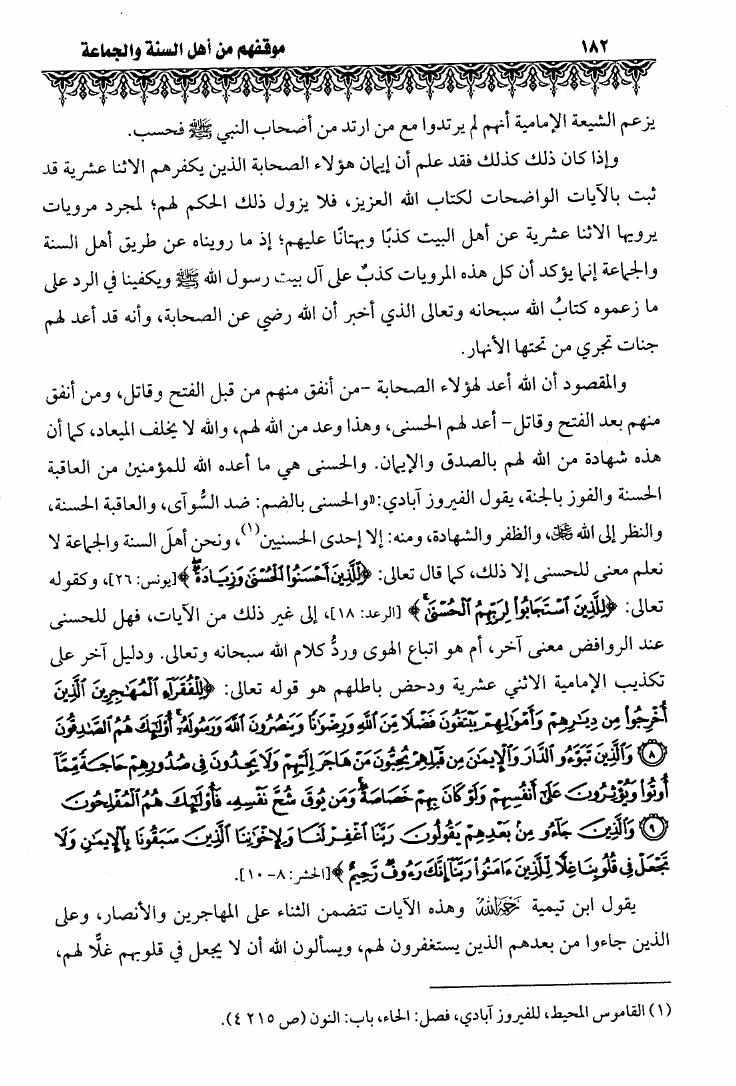 ١٨٢ موقفهم من أهل السنة والجماعة
يزعم الشيعة الإمامية أنهم لم يرتدوا مع من ارتد من أصحاب النبي ﷺ فحسب.
وإذا كان ذلك كذلك فقد علم أن إيمان هؤلاء الصحابة الذين يكفرهم الاثنا عشرية قد
ثبت بالآيات الواضحات لكتاب الله العزيز، فلا يزول ذلك الحكم لهم؛ لمجرد مرويات
يرويها الاثنا عشرية عن أهل البيت كذبًا وبهتانًا عليهم؛ إذ ما رويناه عن طريق أهل السنة
والجماعة إنما يؤكد أن كل هذه المرويات كذبٌ على آل بيت رسول الله ﷺ ويكفينا في الرد على
ما زعموه كتابُ الله سبحانه وتعالى الذي أخبر أن الله رضي عن الصحابة، وأنه قد أعد لهم
جنات تجري من تحتها الأنهار.
والمقصود أن الله أعد لهؤلاء الصحابة -من أنفق منهم من قبل الفتح وقاتل، ومن أنفق
منهم بعد الفتح وقاتل- أعد لهم الحسنى، وهذا وعد من الله لهم، والله لا يخلف الميعاد، كما أن
هذه شهادة من الله لهم بالصدق والإيمان. والحسنى هي ما أعده الله للمؤمنين من العاقبة
الحسنة والفوز بالجنة، يقول الفيروز آبادي:«والحسنى بالضم: ضد السُّوآى، والعاقبة الحسنة،
والنظر إلى الله ﷻ، والظفر والشهادة، ومنه: إلا إحدى الحسنيين(١)، ونحن أهلَ السنة والجماعة لا
نعلم معنى للحسنى إلا ذلك، كما قال تعالى: ﴿لِّلَّذِينَ أَحْسَنُوا الْحُسْنَىٰ وَزِيَادَةٌ﴾[يونس: ٢٦]، وكقوله
تعالى: ﴿لِلَّذِينَ اسْتَجَابُوا لِرَبِّهِمُ الْحُسْنَىٰ﴾ [الرعد: ١٨]، إلى غير ذلك من الآيات، فهل للحسنى
عند الروافض معنى آخر، أم هو اتباع الهوى وردُّ كلام الله سبحانه وتعالى. ودليل آخر على
تكذيب الإمامية الاثني عشرية ودحض باطلهم هو قوله تعالى: ﴿لِلْفُقَرَاءِ الْمُهَاجِرِينَ الَّذِينَ
أُخْرِجُوا مِن دِيَارِهِمْ وَأَمْوَالِهِمْ يَبْتَغُونَ فَضْلًا مِّنَ اللَّهِ وَرِضْوَانًا وَيَنصُرُونَ اللَّهَ وَرَسُولَهُ أُولَٰئِكَ هُمُ الصَّادِقُونَ
٨ وَالَّذِينَ تَبَوَّءُو الدَّارَ وَالْإِيمَانَ مِن قَبْلِهِمْ يُحِبُّونَ مَنْ هَاجَرَ إِلَيْهِمْ وَلَا يَجِدُونَ فِي صُدُورِهِمْ حَاجَةً مِّمَّا
أُوتُوا وَيُؤْثِرُونَ عَلَىٰ أَنفُسِهِمْ وَلَوْ كَانَ بِهِمْ خَصَاصَةٌ وَمَن يُوقَ شُحَّ نَفْسِهِ فَأُولَٰئِكَ هُمُ الْمُفْلِحُونَ
٩ وَالَّذِينَ جَاءُو مِن بَعْدِهِمْ يَقُولُونَ رَبَّنَا اغْفِرْ لَنَا وَلِإِخْوَانِنَا الَّذِينَ سَبَقُونَا بِالْإِيمَانِ وَلَا
تَجْعَلْ فِي قُلُوبِنَا غِلًّا لِّلَّذِينَ ءَامَنُوا رَبَّنَا إِنَّكَ رَءُوفٌ رَّحِيمٌ﴾[الحشر: ٨-١٠].
يقول ابن تيمية رحمه الله وهذه الآيات تتضمن الثناء على المهاجرين والأنصار، وعلى
الذين جاءوا من بعدهم الذين يستغفرون لهم، ويسألون الله أن لا يجعل في قلوبهم غلًّا لهم،
(١) القاموس المحيط، للفيروز آبادي، فصل: الحاء، باب: النون (ص ٢١٥ ٤).